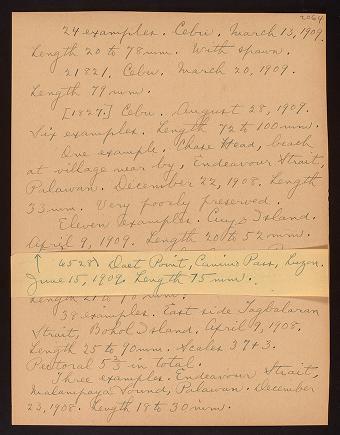 2064
24 examples. Cebu. March 13, 1909.
Length 20 to 78 mm. With spawn.
21821. Cebu. March 20, 1909.
Length 79 mm.
[1827.] Cebu. August 28, 1909.
Six examples. Length 72 to 100 mm.
One example. Chase Head, beach
at village near by, Endeavour Strait,
Palawan. December 22, 1908. Length
33 mm. Very poorly preserved.
Eleven examples. Cuyo Island.
April 9, 1909. Length 20 to 52 mm.
↑ 6528) Daet Point, Canimo Pass, Luzon.
June 15, 1909. Length 75 mm.
Length 21 to mm.
38 examples. East side Tagbilaran
Strait, Bohol Island, April 9, 1908.
Length 25 to 90 mm. Scales 37+3.
Pectoral 5 2/3 in total.
Three examples. Endeavour Strait,
Malampaya Sound, Palawan. December
23, 1908. Length 18 to 30 mm.